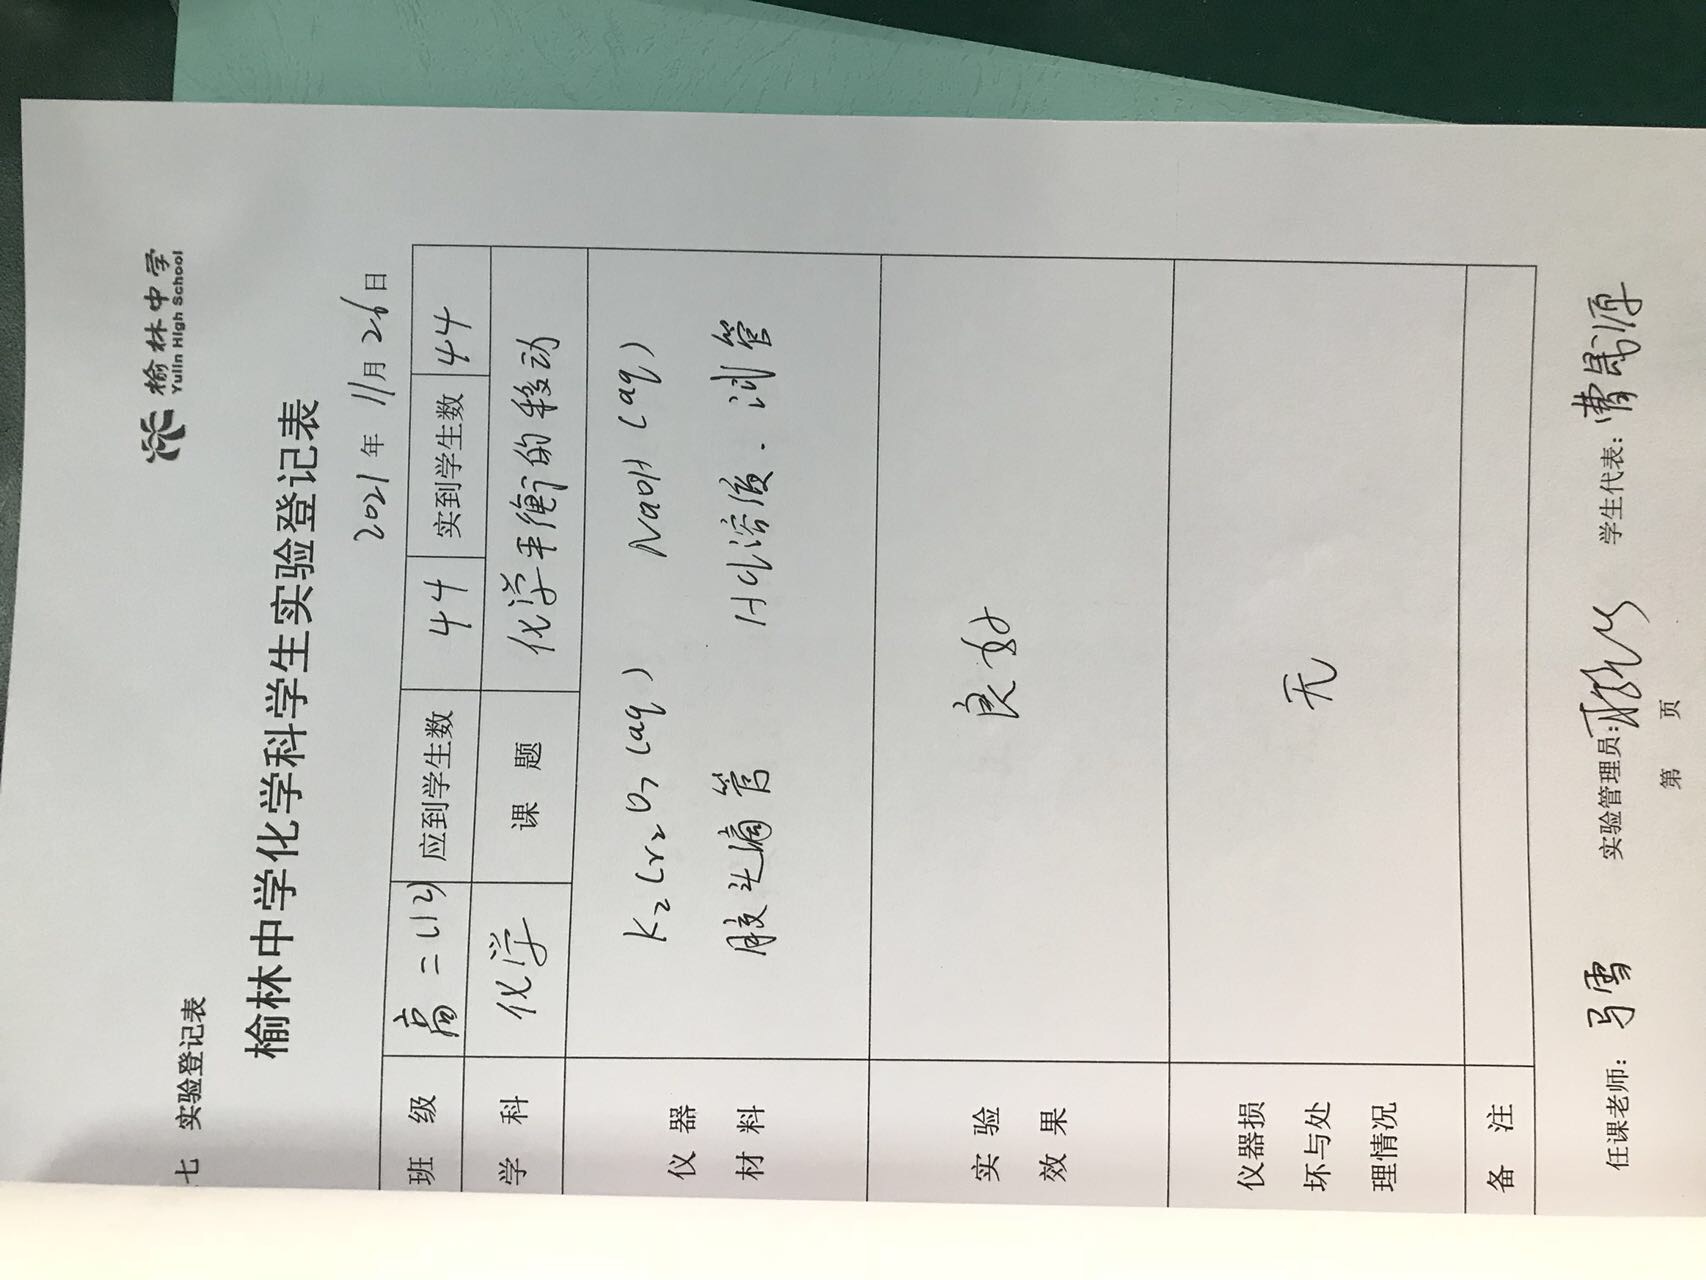 榆林中学
Yulin High School
七 实验登记表
榆林中学化学科学生实验登记表
2021年 11月 26日
班 级 高二(12) 应到学生数 44 实到学生数 44
学 科 化学 课 题 化学平衡的移动
仪 器 K2Cr2O7 (aq) NaOH (aq)
材 料 胶头滴管 HCl溶液. 试管
实 验
效 果 良好
仪器损
坏与处 无
理情况
备 注
任课老师: 马雪 实验管理员: 学生代表: 曹
第 页